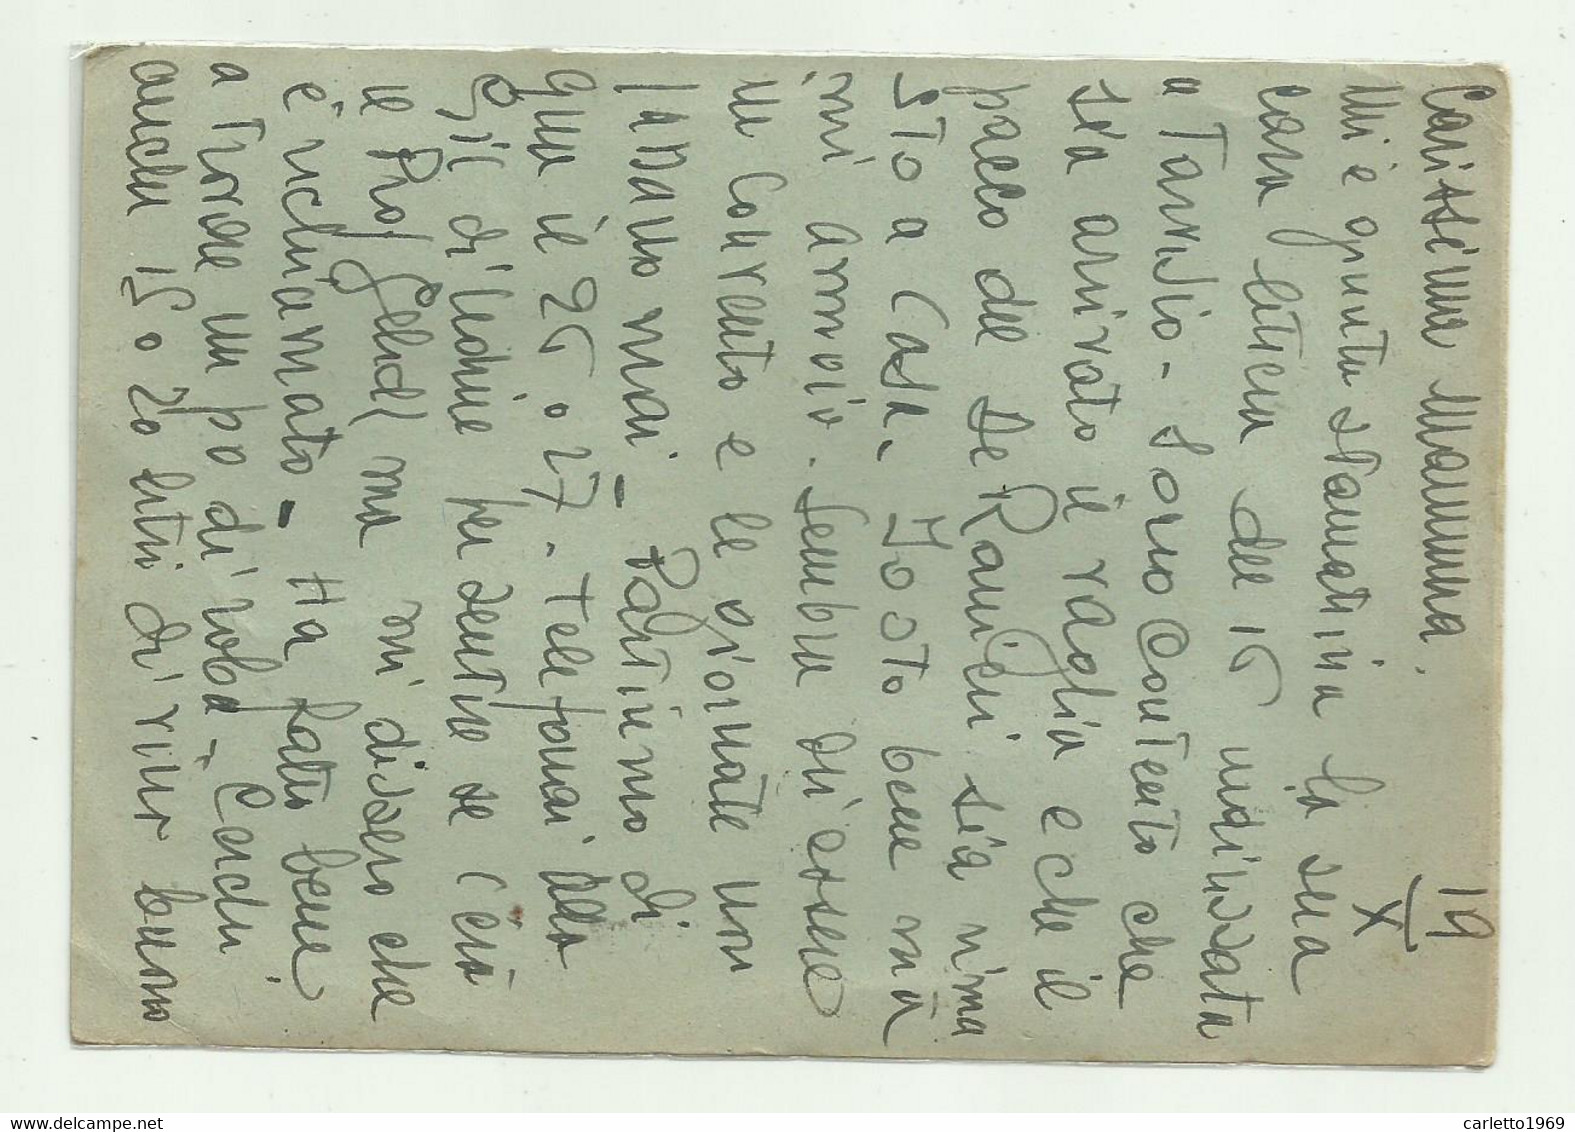 19
X
Carissima Mammina.
Mi è giunta stamattina la sua
cara lettera del 16 indirizzata
a Tarvisio - Sono contento che
sia arrivato il vaglia e che il
pacco del De Ranieri sia rima
sto a Casa. Io sto bene ma
mi annoio. Sembra di essere
in Convento e le giornate non
passano mai - Partiremo di
qua il 26 o 27 - Telefonai alla
Gil di Udine per sentire se c'era
il Prof me mi dissero che
è richiamato - Ha fatto bene
a trovare un po di roba - Cerchi
anche 15 o 20 litri di vino buono
carletto1969